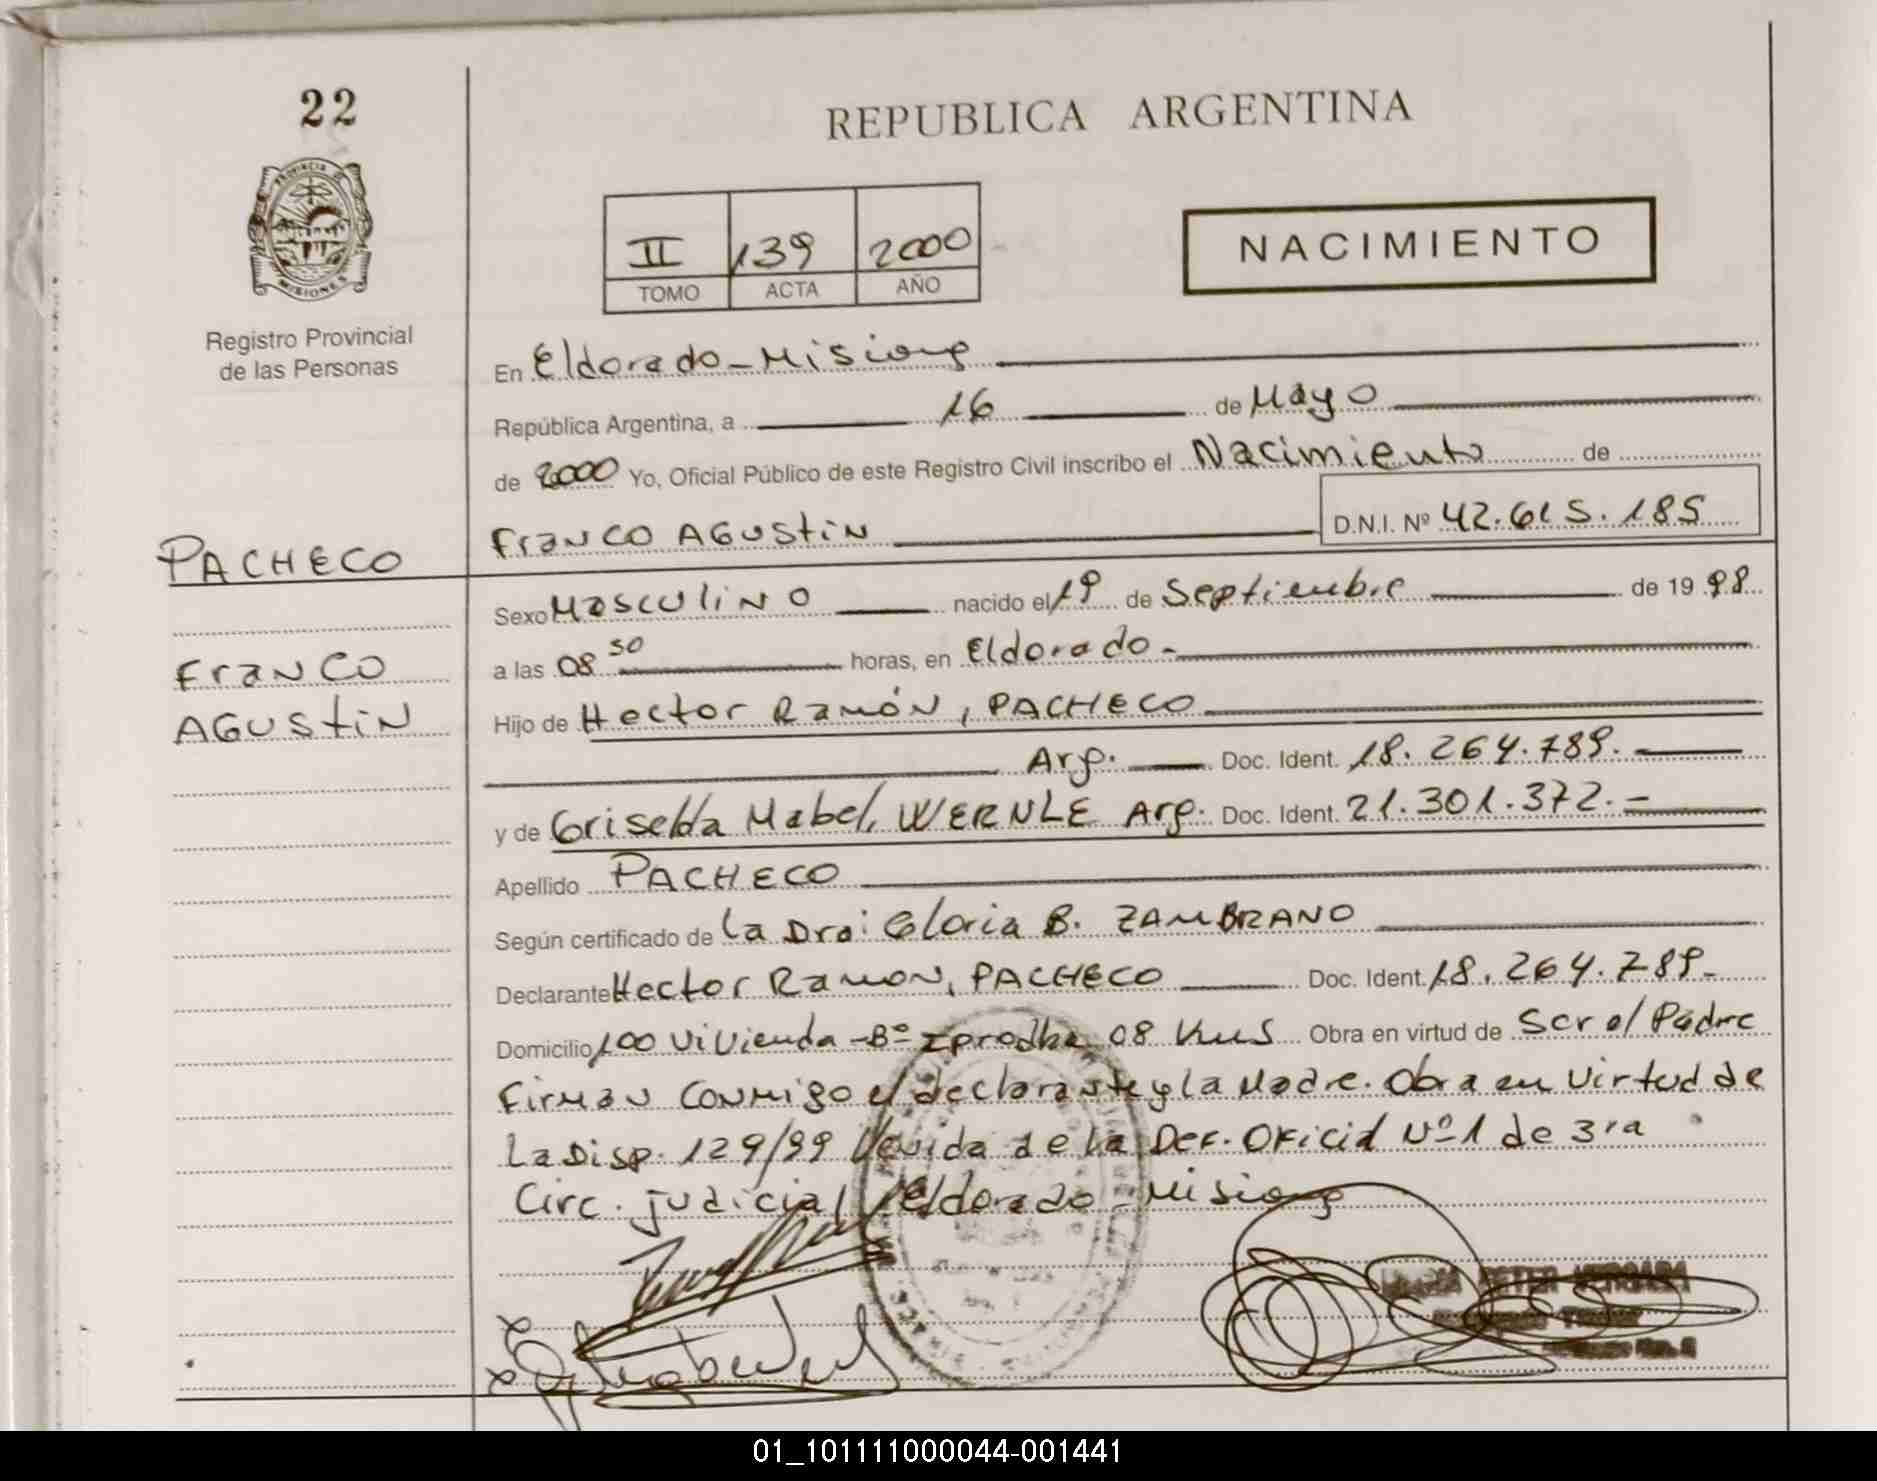 22
PROVINCIA DE
MISIONES
Registro Provincial
de las Personas
REPUBLICA ARGENTINA
II 139 2000
TOMO ACTA AÑO
NACIMIENTO
En Eldorado - Misiones
República Argentina, a 16 de Mayo
de 2000 Yo, Oficial Público de este Registro Civil inscribo el Nacimiento de
PACHECO
Franco Agustin D.N.I. Nº 42.615.185
FRANCO
AGUSTIN
Sexo Masculino nacido el 19 de Septiembre de 19 98
a las 08 50 horas, en Eldorado -
Hijo de Hector Ramón, PACHECO
Arg. Doc. Ident. 18.264.789.
y de Griselda Mabel, WERNLE Arg. Doc. Ident. 21.301.372.-
Apellido PACHECO
Según certificado de La Dra: Gloria B. ZAMBRANO
Declarante Hector Ramon, PACHECO Doc. Ident. 18.264.789-
Domicilio 100 Vivienda - Bº Iprodha 08 Kms Obra en virtud de Ser el Padre
Firman conmigo el declarante y la Madre. Obra en virtud de
La Disp. 129/99 de la Def. Oficial Nº1 de 3ra
Circ. judicial Eldorado - Misiones
01_101111000044-001441